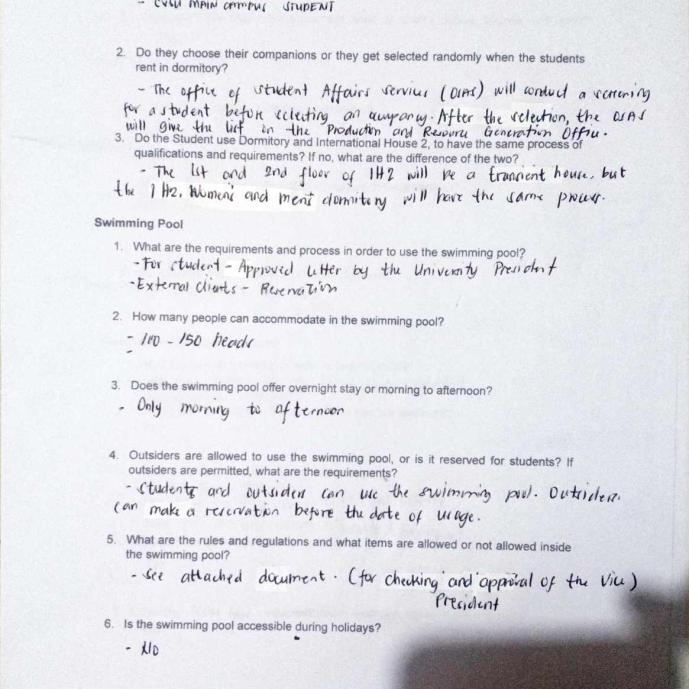 - CVSU MAIN CAMPUS STUDENT
2. Do they choose their companions or they get selected randomly when the students
rent in dormitory?
- The office of student Affairs Services (OSAS) will conduct a screening
for a student before selecting an occupancy. After the selection, the OSAS
will give the list in the Production and Resource Generation Office.
3. Do the Student use Dormitory and International House 2, to have the same process of
qualifications and requirements? If no, what are the difference of the two?
- The 1st and 2nd floor of IH2 will be a transient house, but
the IH2, Women's and men's dormitory will have the same process.
Swimming Pool
1. What are the requirements and process in order to use the swimming pool?
- For student - Approved letter by the University President
- External clients - Reservation
2. How many people can accommodate in the swimming pool?
- 100 - 150 heads
3. Does the swimming pool offer overnight stay or morning to afternoon?
- Only morning to afternoon
4. Outsiders are allowed to use the swimming pool, or is it reserved for students? If
outsiders are permitted, what are the requirements?
- Students and outsiders can use the swimming pool. Outsiders.
can make a reservation before the date of usage.
5. What are the rules and regulations and what items are allowed or not allowed inside
the swimming pool?
- See attached document. (for checking and approval of the Vice)
President
6. Is the swimming pool accessible during holidays?
- No